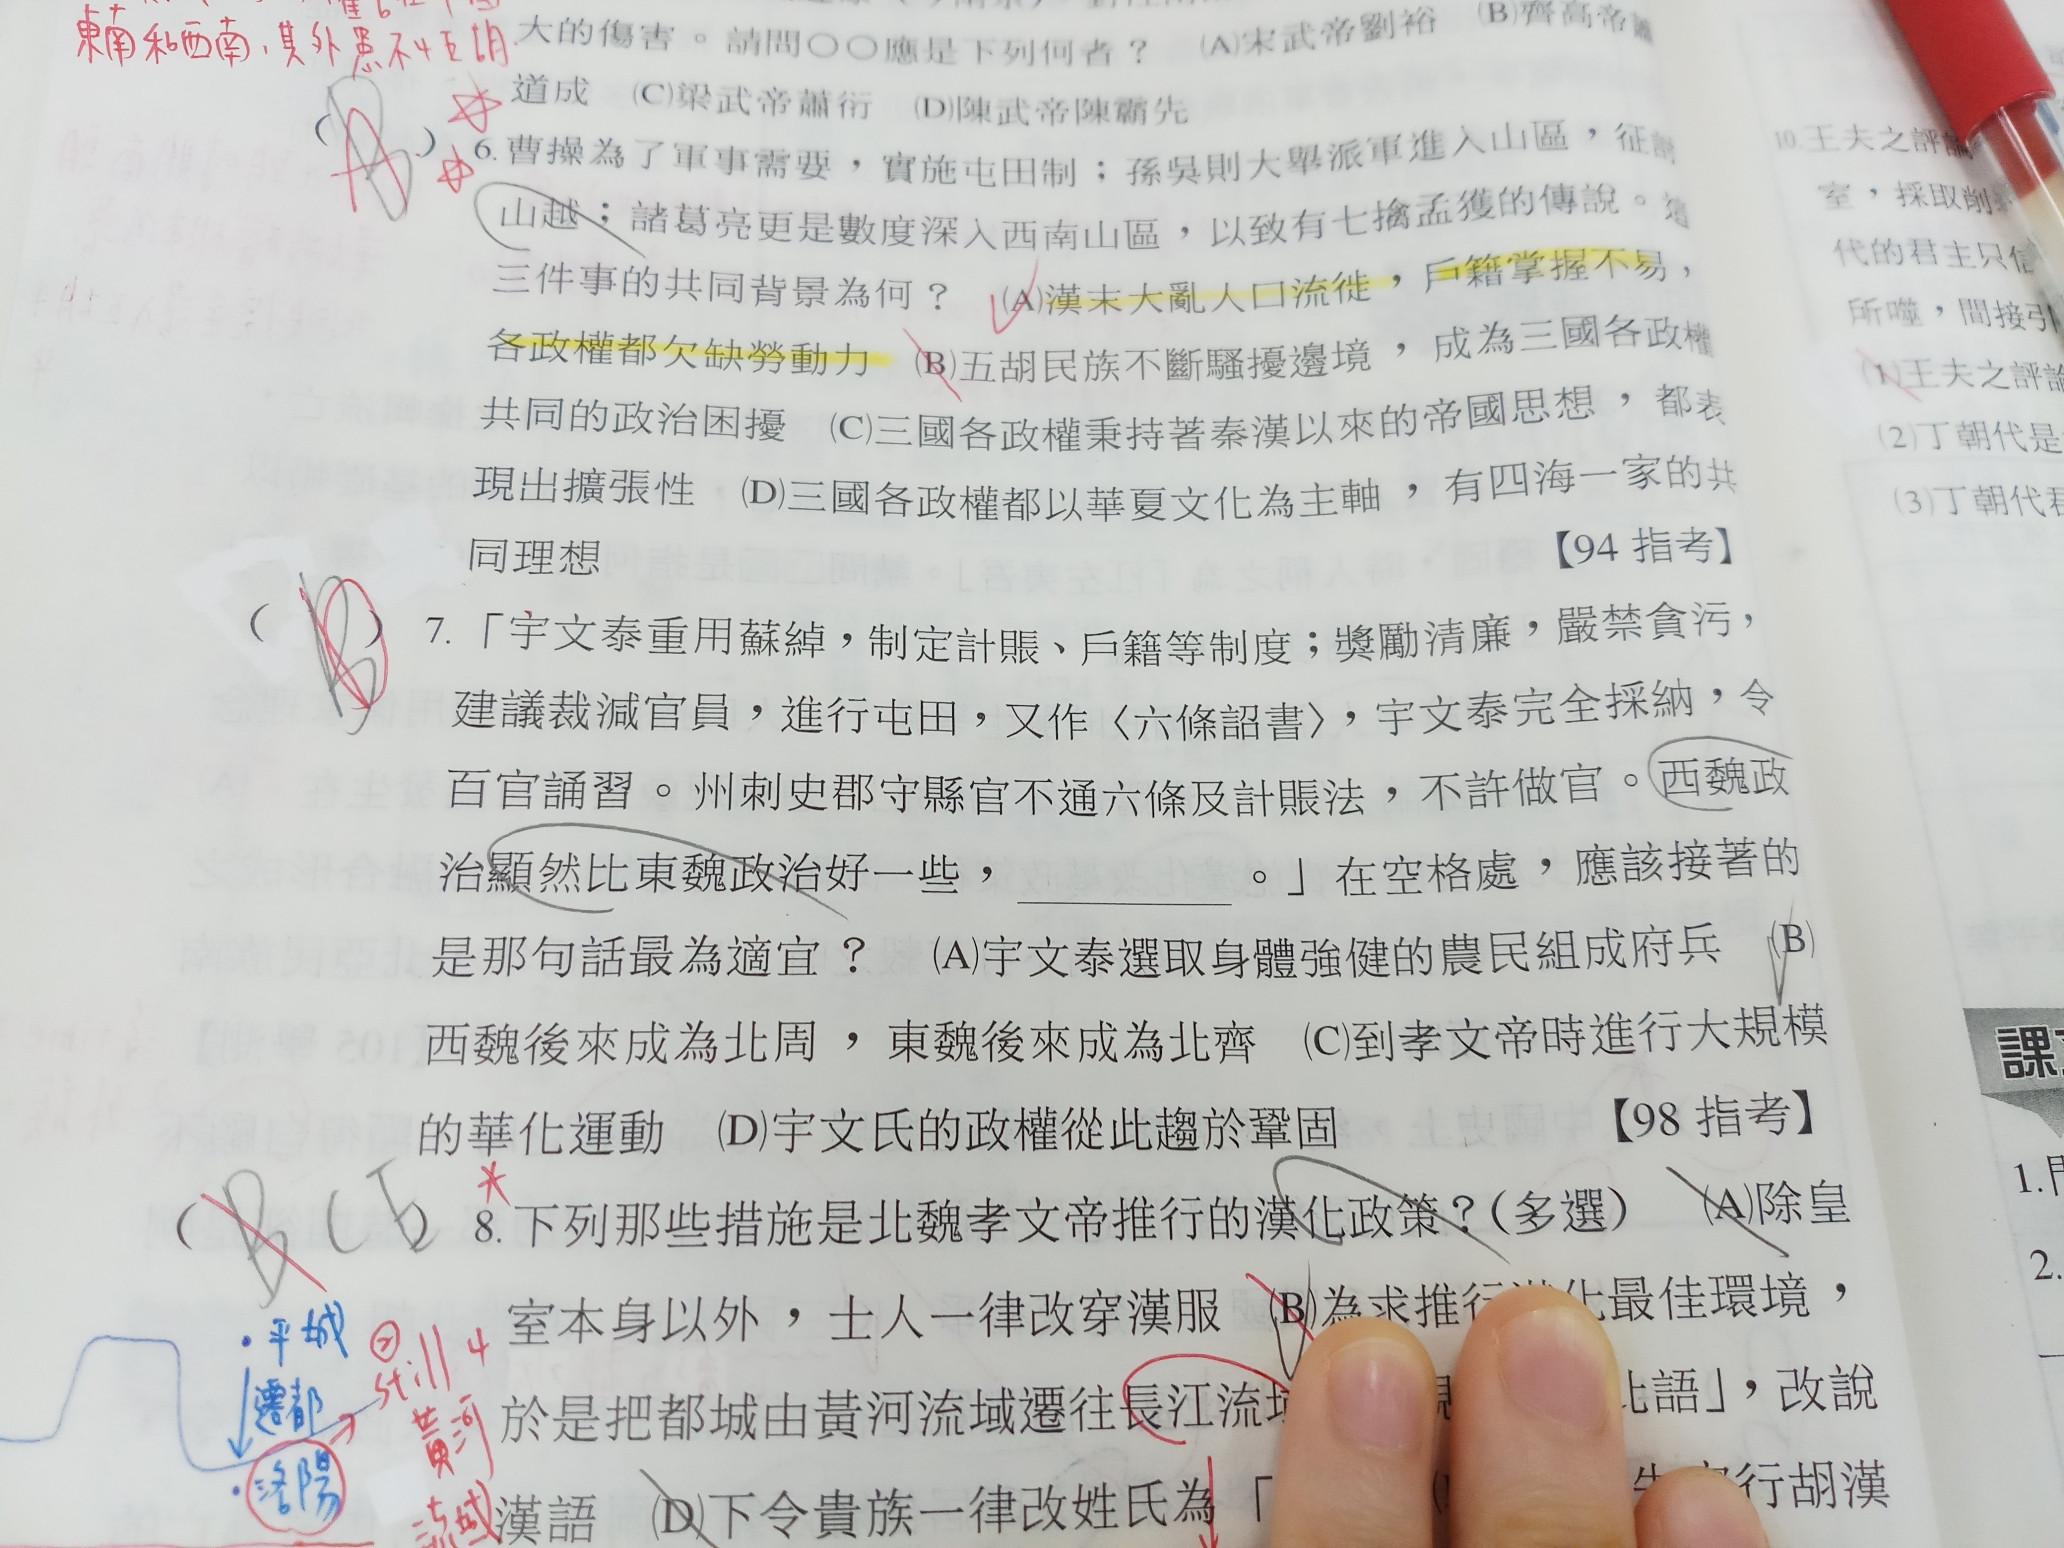 東南和西南,其外患不少五胡
大的傷害。請問〇〇應是下列何者? (A)宋武帝劉裕 (B)齊高帝蕭
道成 (C)梁武帝蕭衍 (D)陳武帝陳霸先
( A ) 6.曹操為了軍事需要,實施屯田制;孫吳則大舉派軍進入山區,征討
山越;諸葛亮更是數度深入西南山區,以致有七擒孟獲的傳說。這
三件事的共同背景為何? (A)漢末大亂人口流徙,戶籍掌握不易,
各政權都欠缺勞動力 (B)五胡民族不斷騷擾邊境,成為三國各政權
共同的政治困擾 (C)三國各政權秉持著秦漢以來的帝國思想,都表
現出擴張性 (D)三國各政權都以華夏文化為主軸,有四海一家的共
同理想 【94 指考】
( B ) 7.「宇文泰重用蘇綽,制定計賬、戶籍等制度;獎勵清廉,嚴禁貪污,
建議裁減官員,進行屯田,又作〈六條詔書〉,宇文泰完全採納,令
百官誦習。州刺史郡守縣官不通六條及計賬法,不許做官。西魏政
治顯然比東魏政治好一些,______。」在空格處,應該接著的
是那句話最為適宜? (A)宇文泰選取身體強健的農民組成府兵 (B)
西魏後來成為北周,東魏後來成為北齊 (C)到孝文帝時進行大規模
的華化運動 (D)宇文氏的政權從此趨於鞏固 【98 指考】
( B C E ) 8.下列那些措施是北魏孝文帝推行的漢化政策?(多選) (A)除皇
室本身以外,士人一律改穿漢服 (B)為求推行漢化最佳環境,
於是把都城由黃河流域遷往長江流域 北語」,改說
漢語 (D)下令貴族一律改姓氏為「 行胡漢
平城
遷都
洛陽
still 4
黃河
流域
10.王夫之評論
室,採取削
代的君主只信
所噬,間接引
(1)王夫之評論
(2)丁朝代是
(3)丁朝代君
課
1.
2.